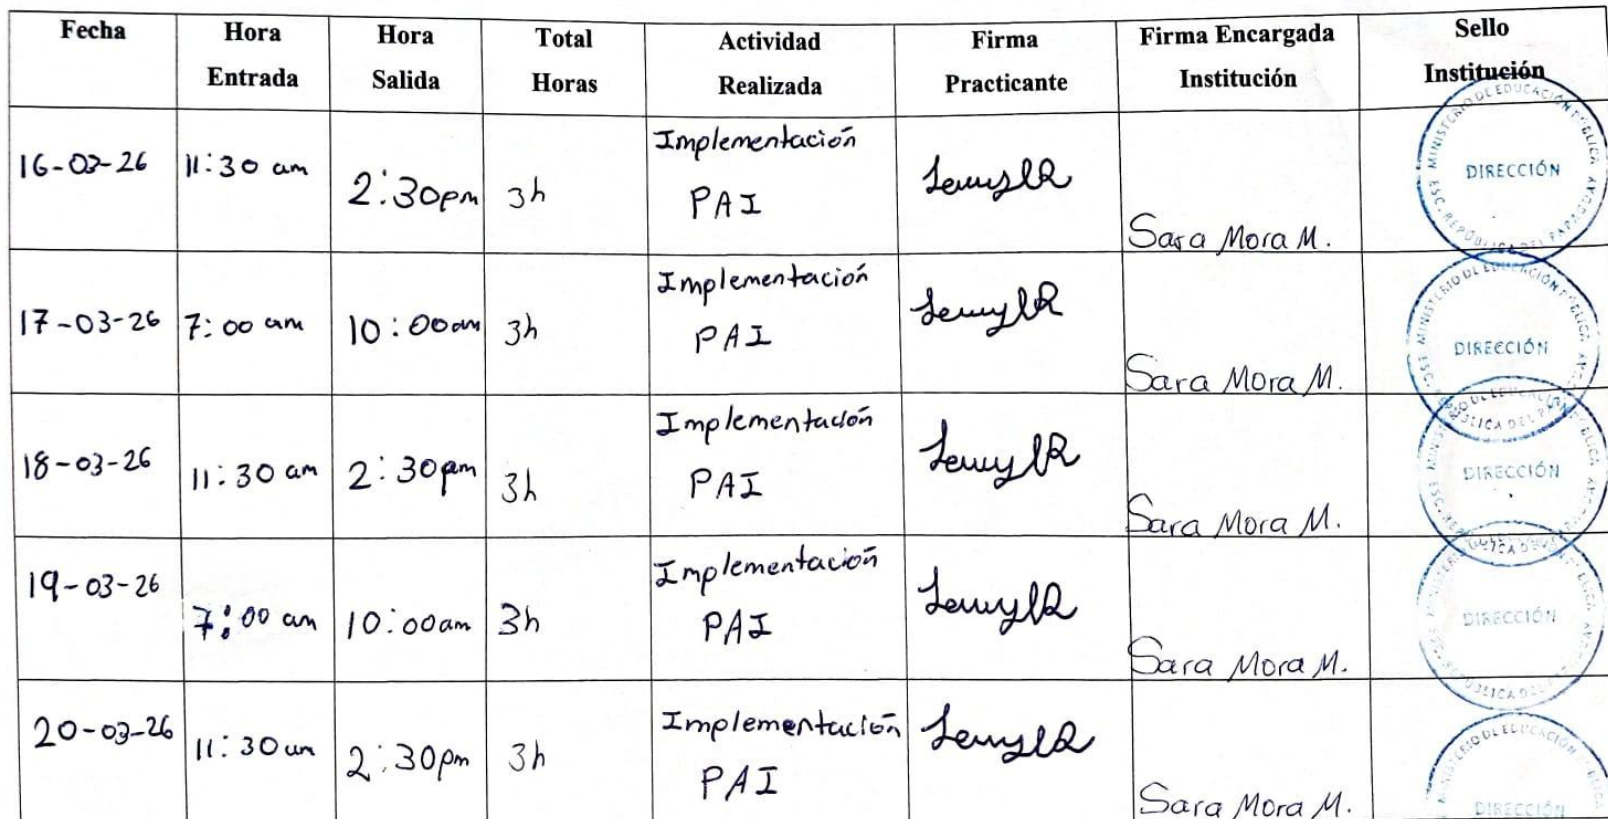 Fecha Hora Entrada Hora Salida Total Horas Actividad Realizada Firma Practicante Firma Encargada Institución Sello Institución
16-03-26 11:30 am 2:30pm 3h Implementación PAI Sara Mora M.
MINISTERIO DE EDUCACIÓN PUBLICA
DIRECCIÓN
ESC. REPÚBLICA DEL PARAGUAY
17-03-26 7:00 am 10:00am 3h Implementación PAI Sara Mora M.
DIRECCIÓN
18-03-26 11:30 am 2:30pm 3h Implementación PAI Sara Mora M.
DIRECCIÓN
19-03-26 7:00 am 10:00am 3h Implementación PAI Sara Mora M.
DIRECCIÓN
20-03-26 11:30 am 2:30pm 3h Implementación PAI Sara Mora M.
DIRECCIÓN